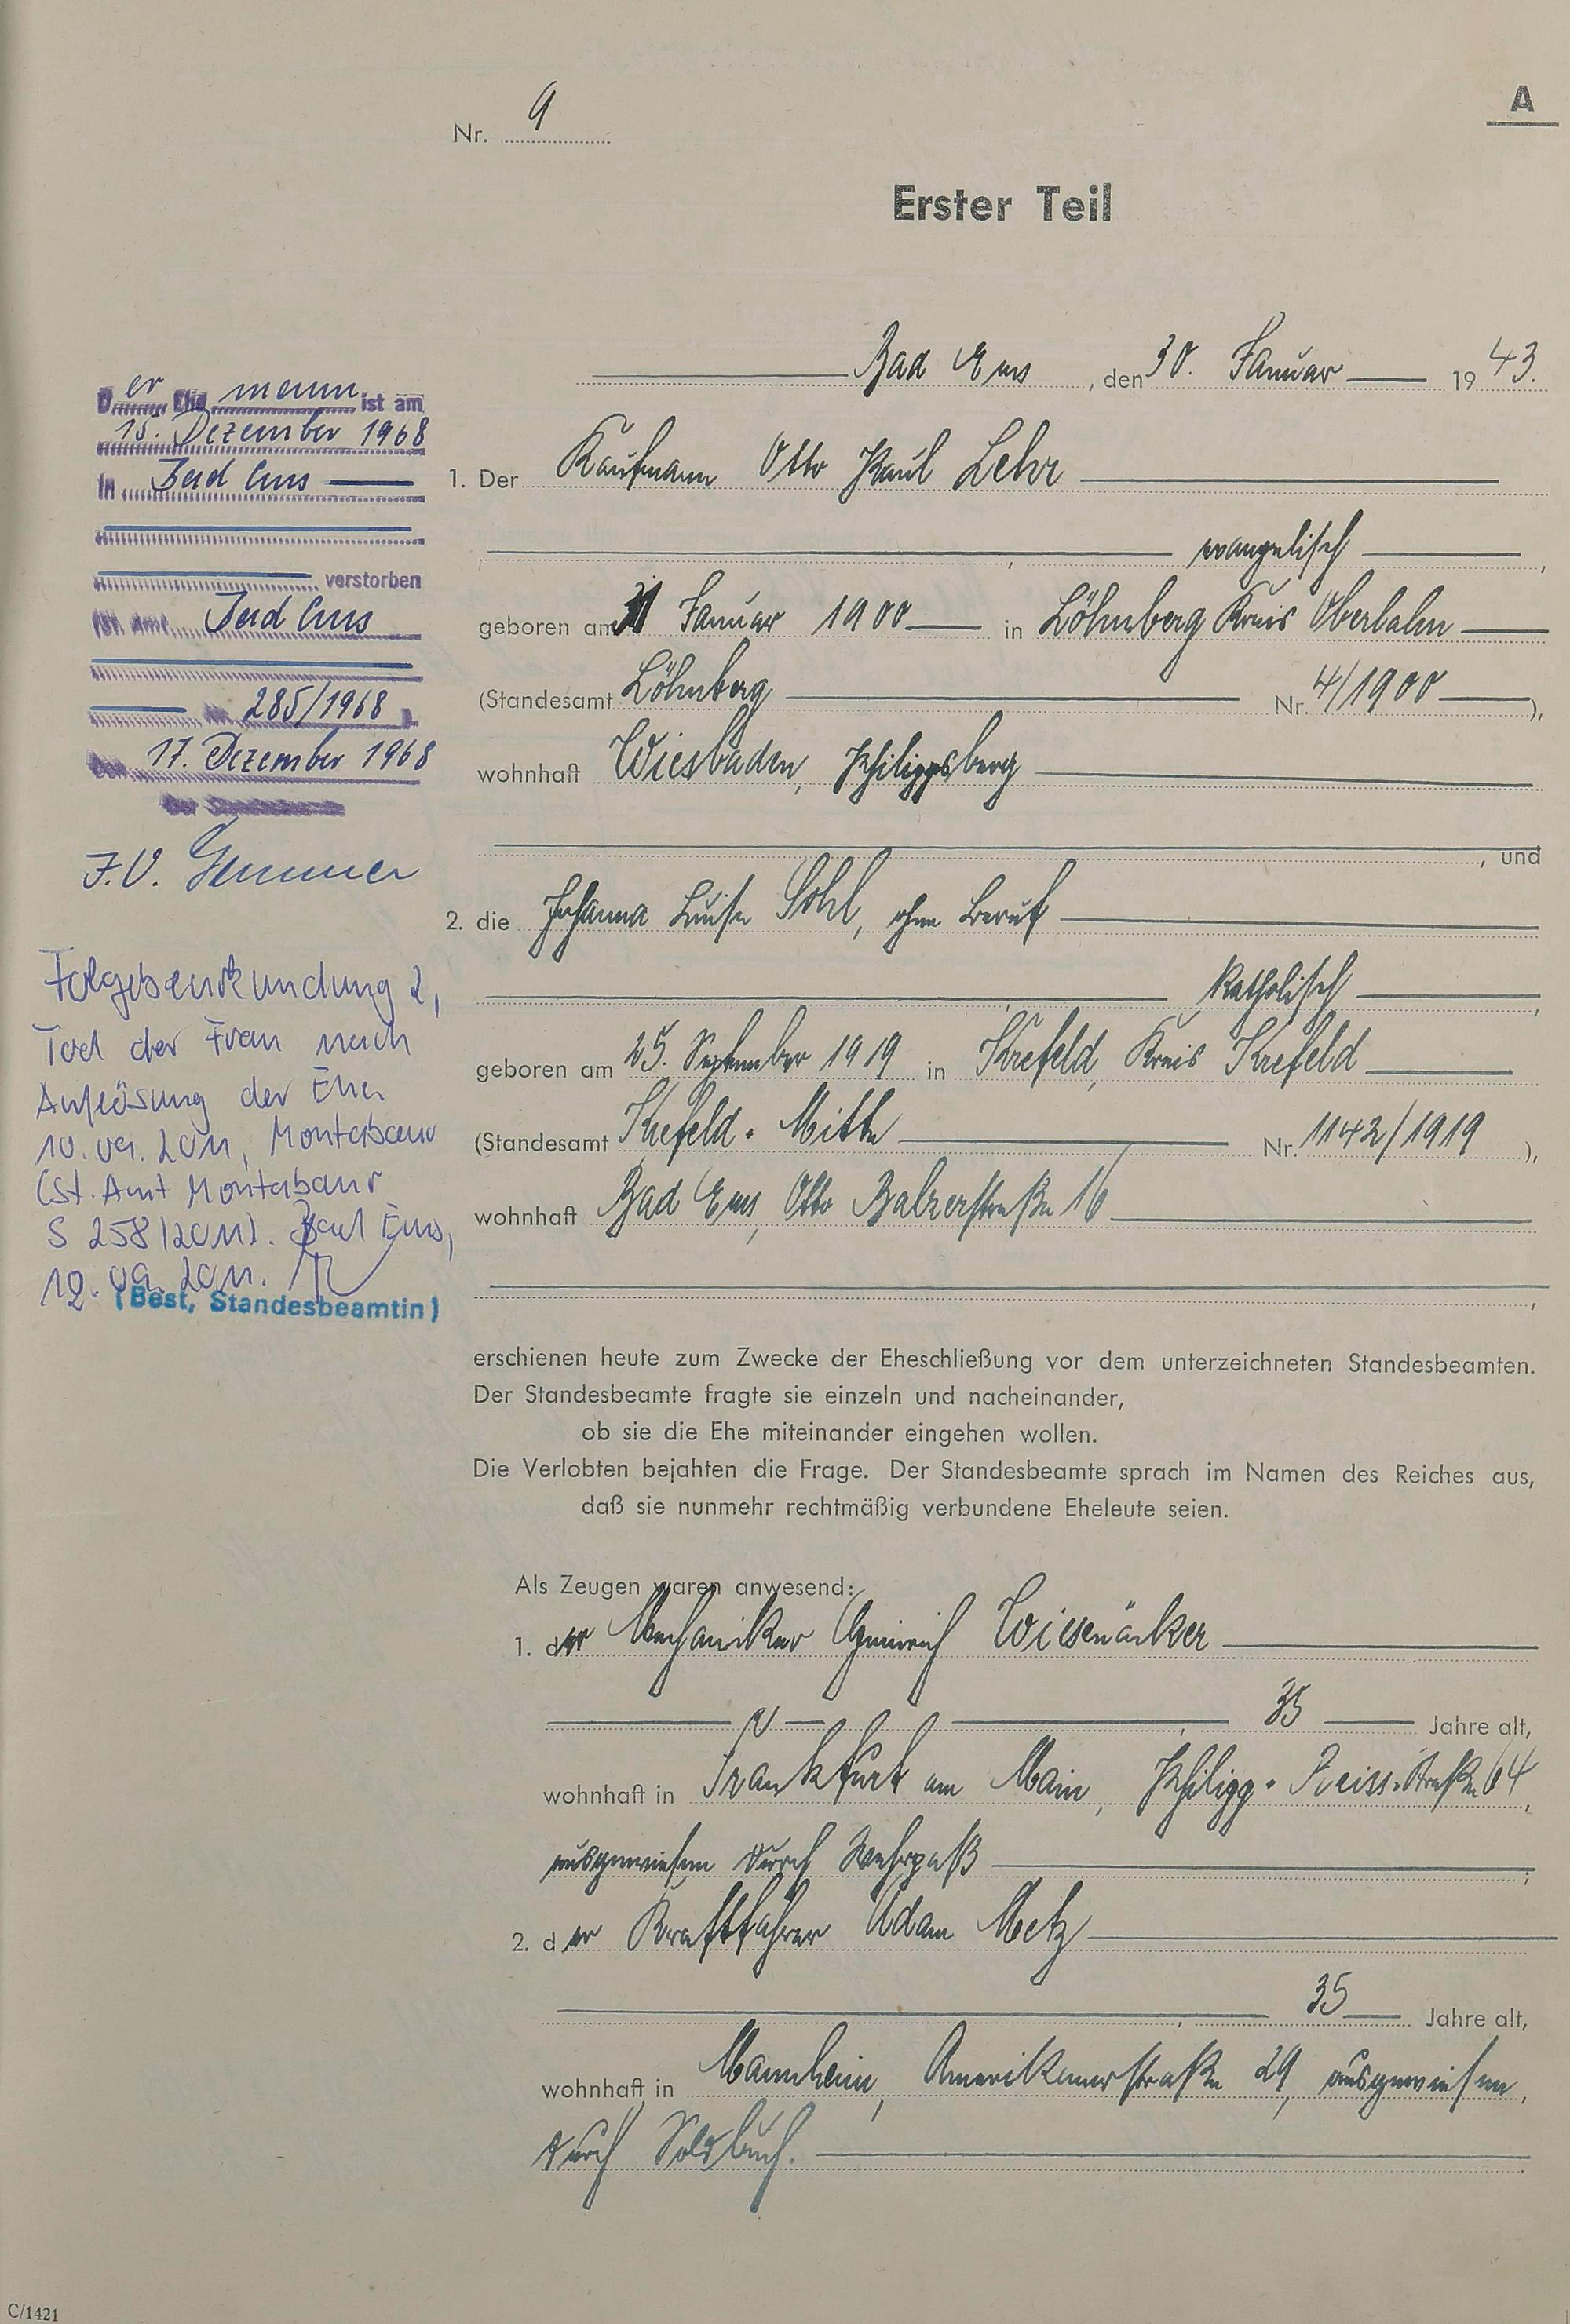 A
Nr. 9
Erster Teil
Bad Ems, den 30. Januar 1943.
1. Der Kaufmann Otto Paul Lehr
, evangelisch,
geboren am Januar 1900 in Löhnberg Kreis Oberlahn
(Standesamt Löhnberg Nr. 4/1900),
wohnhaft Wiesbaden, Philippsberg
, und
2. die Johanna Luise Sohl, ohne Beruf
, katholisch,
geboren am 25. September 1919 in Krefeld, Kreis Krefeld
(Standesamt Krefeld-Mitte Nr. 1142/1919),
wohnhaft Bad Ems, Otto Balzerstraße 16
,
erschienen heute zum Zwecke der Eheschließung vor dem unterzeichneten Standesbeamten.
Der Standesbeamte fragte sie einzeln und nacheinander,
ob sie die Ehe miteinander eingehen wollen.
Die Verlobten bejahten die Frage. Der Standesbeamte sprach im Namen des Reiches aus,
daß sie nunmehr rechtmäßig verbundene Eheleute seien.
Als Zeugen waren anwesend:
1. der Mechaniker Heinrich Wiesenäcker
, 35 Jahre alt,
wohnhaft in Frankfurt am Main, Philipp-Reiss-Straße 64,
ausgewiesen durch Wehrpaß;
2. der Kraftfahrer Adam Metz
, 35 Jahre alt,
wohnhaft in Mannheim, Amerikanerstraße 29, ausgewiesen,
durch Soldbuch.
Der Ehemann ist am
15. Dezember 1968
in Bad Ems
verstorben
(St. Amt Bad Ems
Nr. 285/1968).
Den 17. Dezember 1968
Der Standesbeamte
J.V.
Folgebeurkundung 2,
Tod der Frau nach
Auflösung der Ehe
10.09.2011, Montabaur
(St. Amt Montabaur
S 258/2011). Bad Ems,
12.09.2011.
(Best, Standesbeamtin)
C/1421